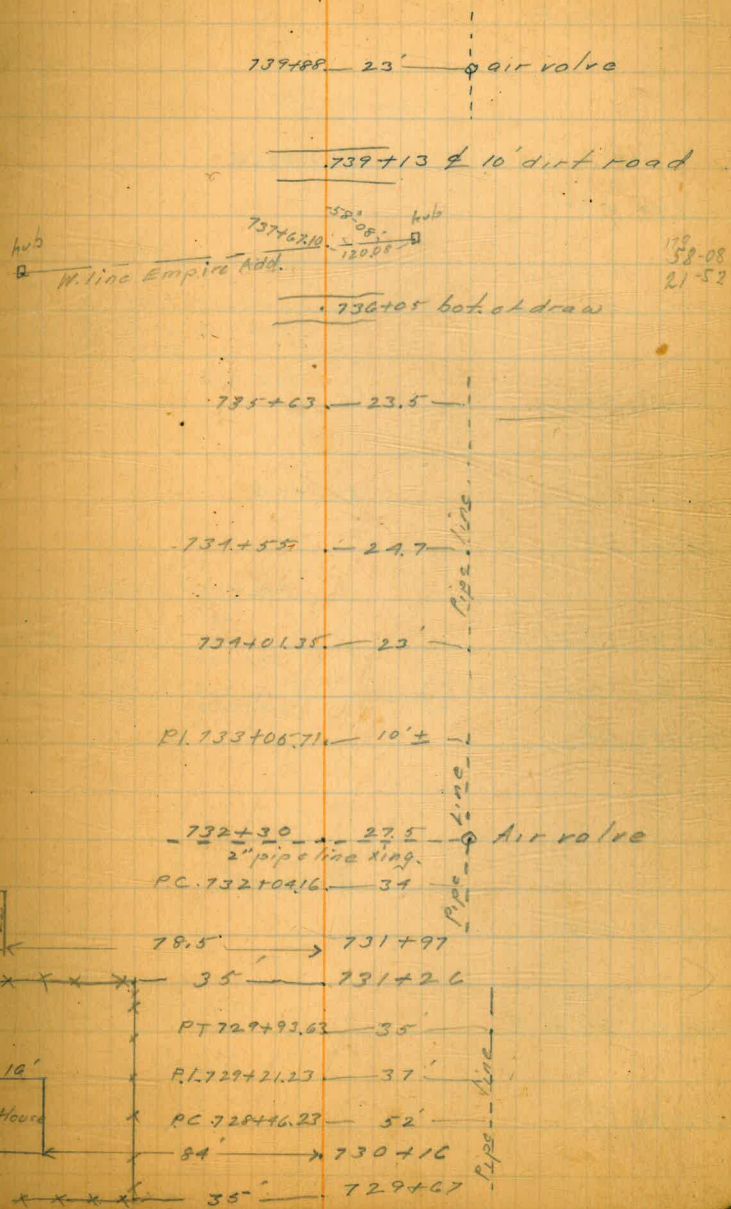 739+88 23' air valve
739+13 ⅊ 10' dirt road
hub 737+67.10 58°-08' hub
120.08
W. line Empire Add.
58-08
21-52
736+05 bot. of draw
735+63 23.5
734+55 24.7
Pipe line
734+01.35 23'
P.I. 733+05.71 10'±
732+30 27.5 Air valve
2" pipe line Xing.
P.C. 732+04.16 34
Pipe Line
78.5' 731+97
35' 731+26
PT 729+93.63 35'
16' P.I. 729+21.23 37'
House P.C. 728+46.23 52'
84' 730+16
Pipe line
35' 729+67